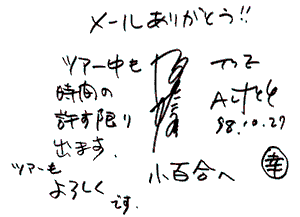 メールありがとう!!
ツアー中も
時間の
許す限り
出ます.
ツアーも
よろしく
です.
98.10.27
小百合へ
幸